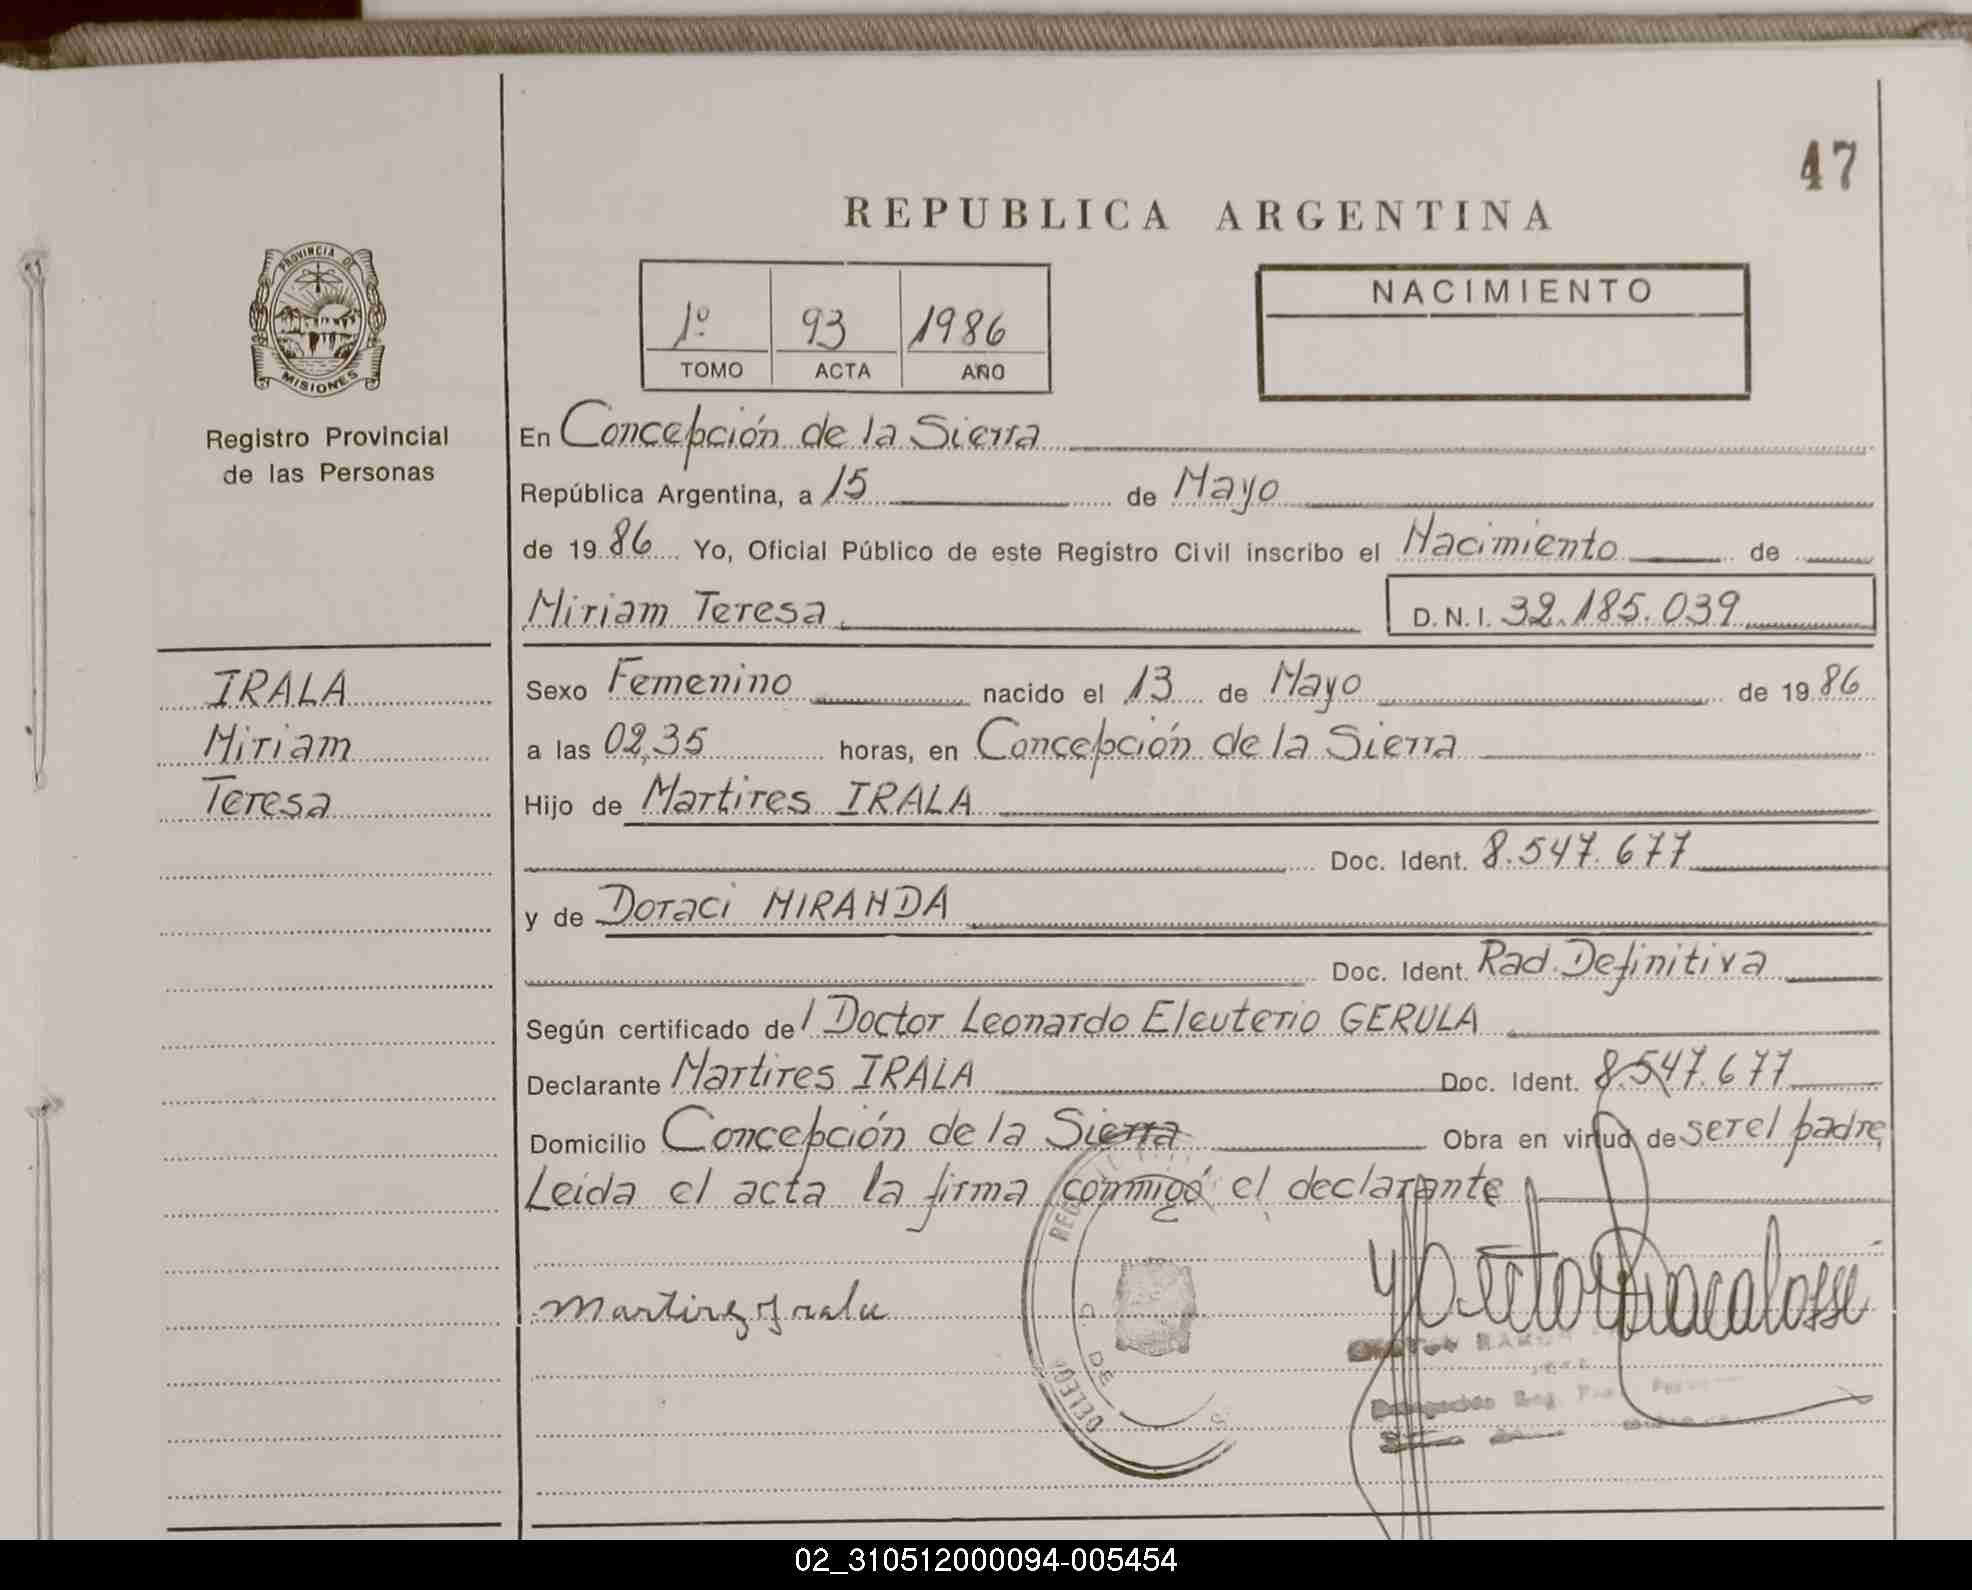 47
REPUBLICA ARGENTINA
PROVINCIA DE
MISIONES
Registro Provincial
de las Personas
1º 93 1986
TOMO ACTA AÑO
NACIMIENTO
En Concepción de la Sierra
República Argentina, a 15 de Mayo
de 1986 Yo, Oficial Público de este Registro Civil inscribo el Nacimiento de
Miriam Teresa D.N.I. 32.185.039
IRALA
Miriam
Teresa
Sexo Femenino nacido el 13 de Mayo de 1986
a las 02,35 horas, en Concepción de la Sierra
Hijo de Martires IRALA
Doc. Ident. 8.547.677
y de Doraci MIRANDA
Doc. Ident. Rad. Definitiva
Según certificado del Doctor Leonardo Eleuterio GERULA
Declarante Martires IRALA Doc. Ident. 8.547.677
Domicilio Concepción de la Sierra Obra en virtud de ser el padre
Leida el acta la firma conmigo el declarante
Martires Irala
02_310512000094-005454